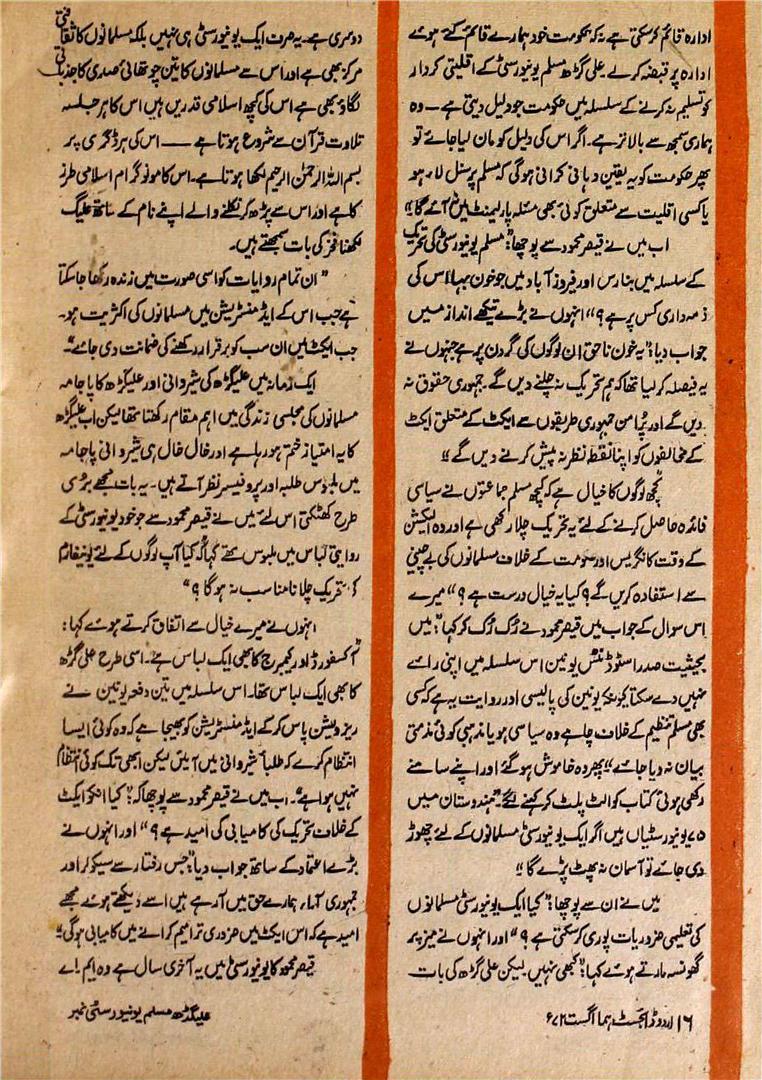 ادارہ قائم کرسکتی ہے نہ کہ حکومت خود ہمارے قائم کئے ہوئے
ادارہ پر قبضہ کرلے علی گڑھ مسلم یونیورسٹی کے اقلیتی کردار
کو تسلیم نہ کرنے کے سلسلہ میں حکومت جو دلیل دیتی ہے — وہ
ہماری سمجھ سے بالاتر ہے۔ اگر اس کی دلیل کو مان لیا جائے تو
پھر حکومت کو یہ یقین دہانی کرانی ہوگی کہ مسلم پرسنل لاء ہو
یا کسی اقلیت سے متعلق کوئی بھی مسئلہ پارلیمنٹ میں آئے گا"
اب میں نے قیصر محمود سے پوچھا: "مسلم یونیورسٹی کی تحریک
کے سلسلہ میں بنارس اور فیروز آباد میں جو خون بہا، اس کی
ذمہ داری کس پر ہے؟" انہوں نے بڑے تیکھے انداز میں
جواب دیا: "یہ خون ناحق ان لوگوں کی گردن پر ہے جنہوں نے
یہ فیصلہ کرلیا تھا کہ ہم تحریک نہ چلنے دیں گے۔ جمہوری حقوق نہ
دیں گے اور پُرامن جمہوری طریقوں سے ایکٹ کے متعلق ایکٹ
کے مخالفوں کو اپنا نقطۂ نظر نہ پیش کرنے دیں گے"
"کچھ لوگوں کا خیال ہے کہ کچھ مسلم جماعتوں نے سیاسی
فائدہ حاصل کرنے کے لئے یہ تحریک چلا رکھی ہے اور وہ الیکشن
کے وقت کانگریس اور حکومت کے خلاف مسلمانوں کی بے چینی
سے استفادہ کریں گے؟ کیا یہ خیال درست ہے؟" میرے
اس سوال کے جواب میں قیصر محمود نے رُک رُک کر کہا: "میں
بحیثیت صدر اسٹوڈنٹس یونین اس سلسلہ میں اپنی رائے
نہیں دے سکتا کیونکہ یونین کی پالیسی اور روایت یہ ہے کہ کسی
بھی مسلم تنظیم کے خلاف چاہے وہ سیاسی ہو یا مذہبی کوئی مذمتی
بیان نہ دیا جائے" پھر وہ خاموش ہوگئے اور اپنے سامنے
رکھی ہوئی کتاب کو الٹ پلٹ کر کہنے لگے: "ہندوستان میں
۷۵ یونیورسٹیاں ہیں اگر ایک یونیورسٹی مسلمانوں کے لئے چھوڑ
دی جائے تو آسمان نہ پھٹ پڑے گا"
میں نے ان سے پوچھا: "کیا ایک یونیورسٹی مسلمانوں
کی تعلیمی ضروریات پوری کرسکتی ہے؟" اور انہوں نے میز پر
گھونسہ مارتے ہوئے کہا: "کبھی نہیں۔ لیکن علی گڑھ کی بات
دوسری ہے۔ یہ صرف ایک یونیورسٹی ہی نہیں بلکہ مسلمانوں کا ثقافتی
مرکز بھی ہے اور اس سے مسلمانوں کا تین چوتھائی صدی کا جذباتی
لگاؤ بھی ہے اس کی کچھ اسلامی قدریں ہیں اس کا ہر جلسہ
تلاوت قرآن سے شروع ہوتا ہے — اس کی ہر ڈگری پر
بسم اللہ الرحمٰن الرحیم لکھا ہوتا ہے۔ اس کا مونوگرام اسلامی طرز
کا ہے اور اس سے پڑھ کر نکلنے والے اپنے نام کے ساتھ علیگ
لکھنا فخر کی بات سمجھتے ہیں۔
"ان تمام روایات کو اسی صورت میں زندہ رکھا جاسکتا
ہے جب اس کے ایڈمنسٹریشن میں مسلمانوں کی اکثریت ہو۔
جب ایکٹ میں ان سب کو برقرار رکھنے کی ضمانت دی جائے"۔
ایک زمانہ میں علیگڑھ کی شیروانی اور علیگڑھ کا پاجامہ
مسلمانوں کی مجلسی زندگی میں اہم مقام رکھتا تھا لیکن اب علیگڑھ
کا یہ امتیاز ختم ہو رہا ہے اور خال خال ہی شیروانی پاجامہ
میں ملبوس طلبہ اور پروفیسر نظر آتے ہیں۔ یہ بات مجھے بڑی
طرح کھٹکتی اس لئے میں نے قیصر محمود سے جو خود یونیورسٹی کے
روایتی لباس میں ملبوس تھے کہا: "کیا آپ لوگوں کے لئے یونیفارم
کی تحریک چلانا مناسب نہ ہوگا؟"
انہوں نے میرے خیال سے اتفاق کرتے ہوئے کہا:
"آکسفورڈ اور کیمبرج کا بھی ایک لباس ہے۔ اسی طرح علی گڑھ
کا بھی ایک لباس تھا۔ اس سلسلہ میں تین دفعہ یونین نے
ریزولیشن پاس کرکے ایڈمنسٹریشن کو بھیجا ہے کہ وہ کوئی ایسا
انتظام کرے کہ طلباء شیروانی میں آئیں لیکن ابھی تک کوئی انتظام
نہیں ہوا ہے"۔ اب میں نے قیصر محمود سے پوچھا کہ: "کیا ایکٹ
کے خلاف تحریک کی کامیابی کی امید ہے؟" اور انہوں نے
بڑے اعتماد کے ساتھ جواب دیا: "جس رفتار سے سیکولر اور
جمہوری آراء ہمارے حق میں آرہے ہیں اسے دیکھتے ہوئے مجھے
امید ہے کہ اس ایکٹ میں ضروری ترامیم کرانے میں کامیابی ہوگی"
قیصر محمود کا یونیورسٹی میں یہ آخری سال ہے وہ ایم۔ اے
۱۶ اردو ڈائجسٹ ہما اگست ۷۲ء
علیگڑھ مسلم یونیورسٹی نمبر